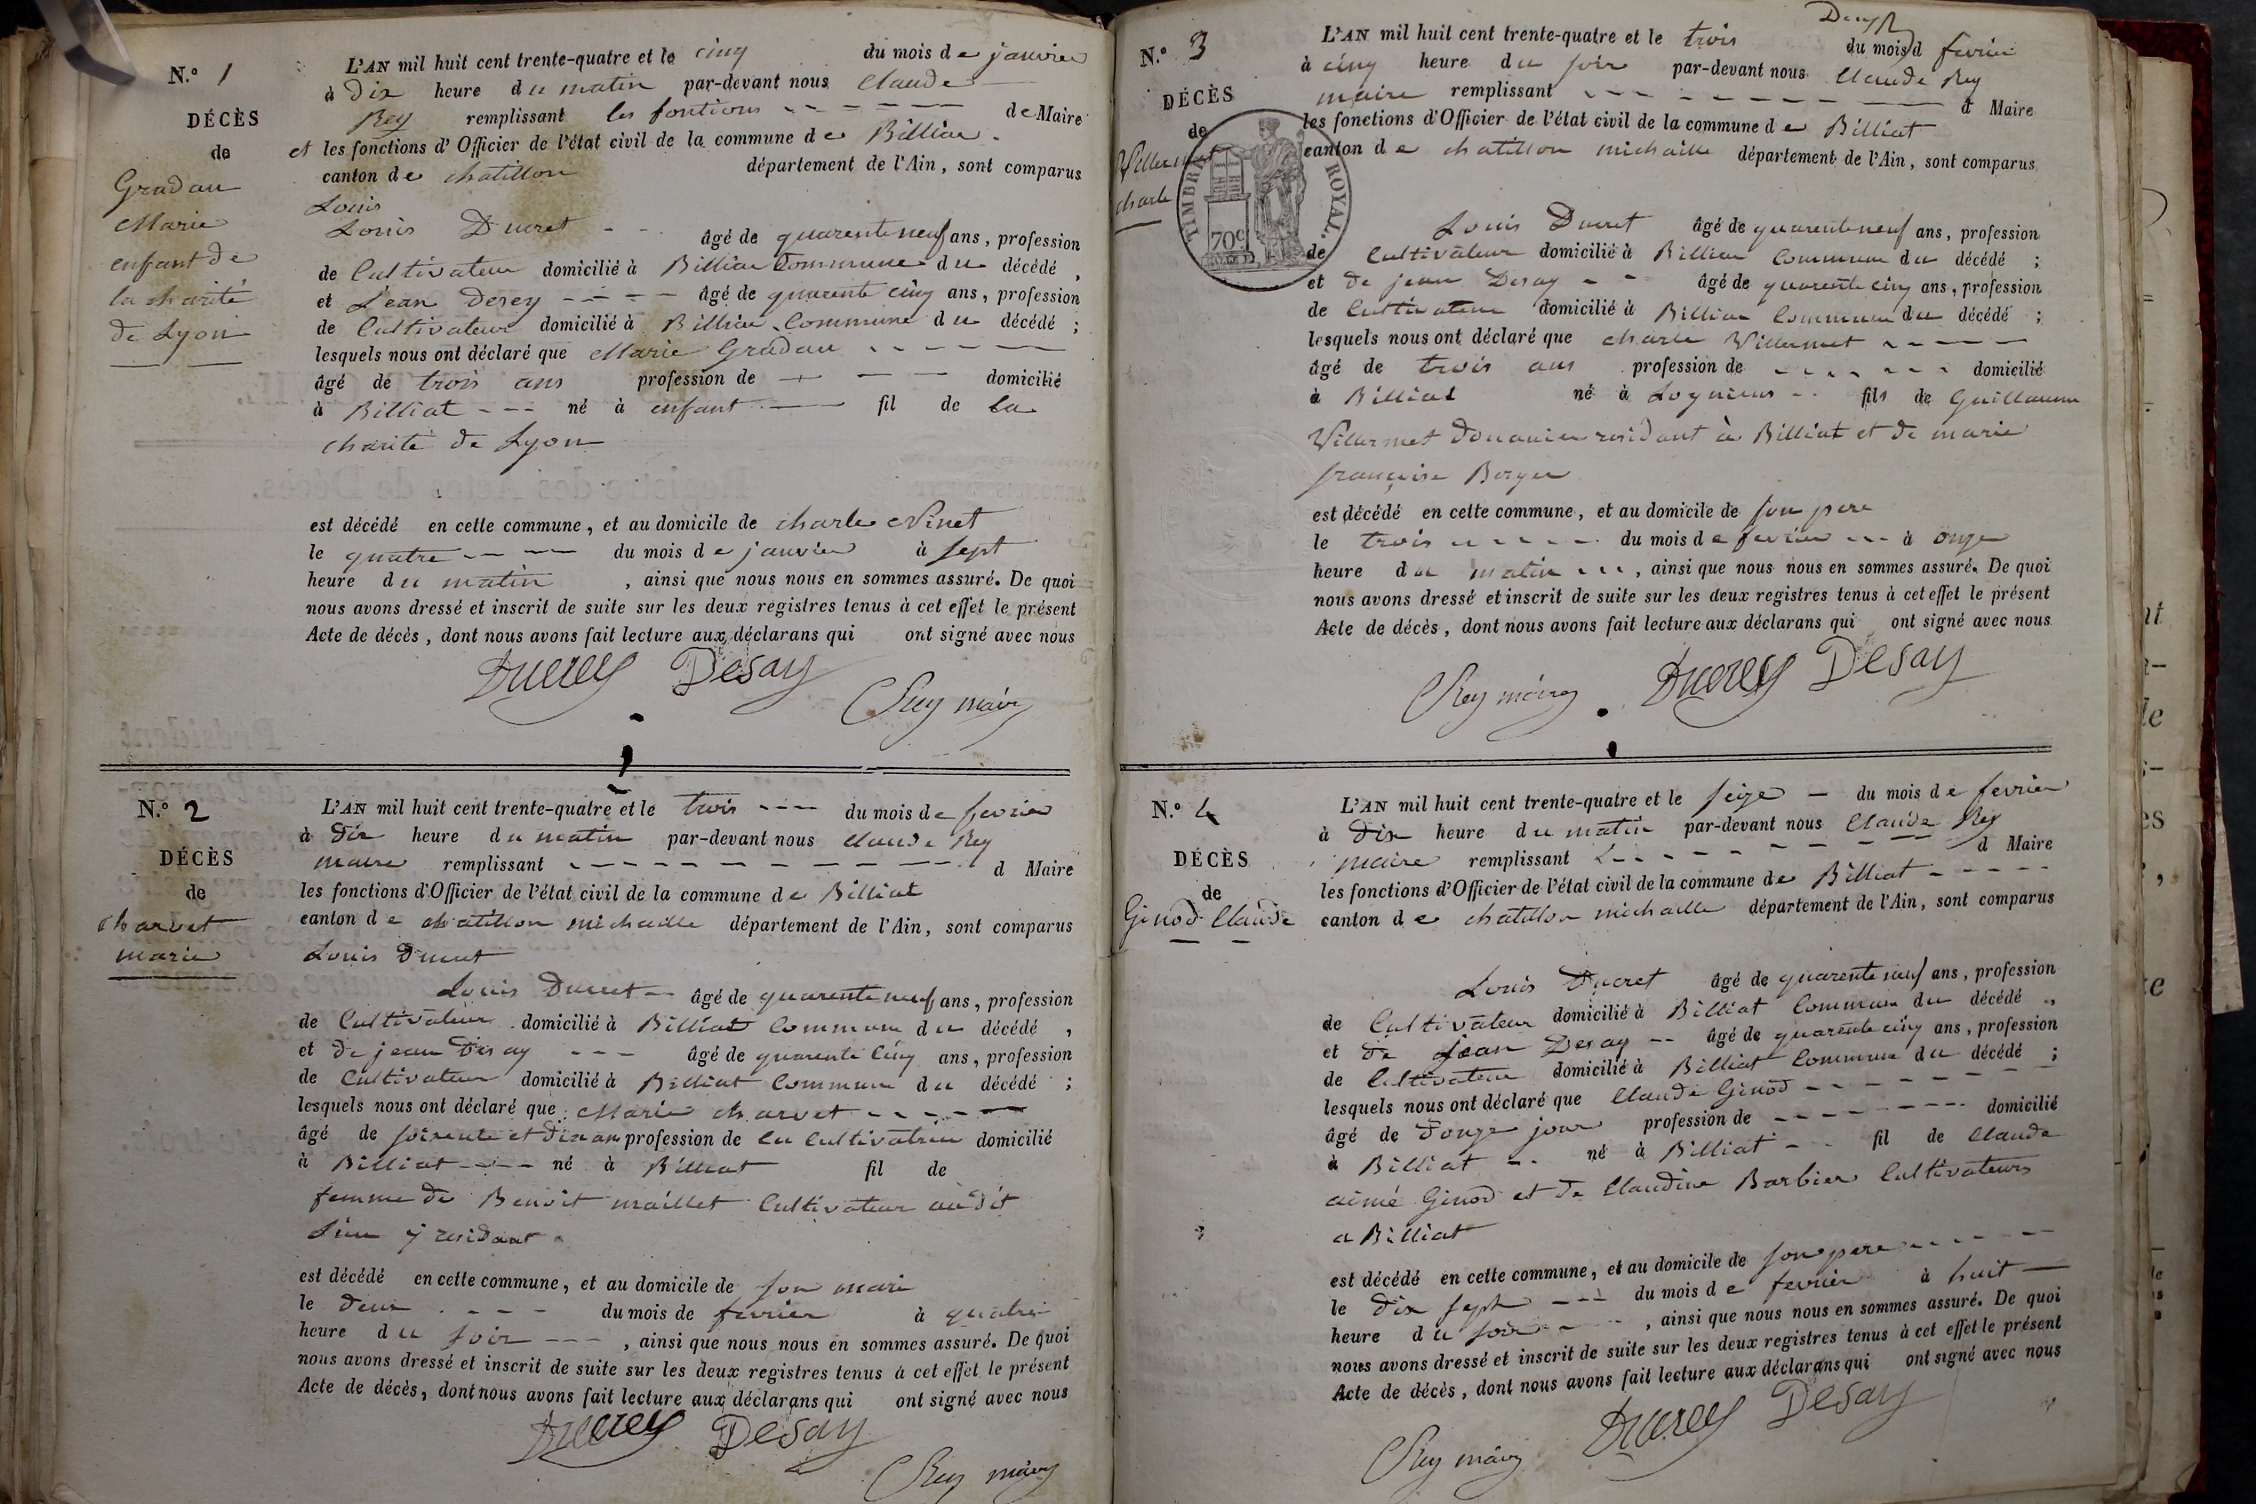 N.º 1
DÉCÈS
de
Gradau
Marie
enfant de
la charité
de Lyon
L'AN mil huit cent trente-quatre et le cinq du mois de janvier
à dix heure du matin par-devant nous Claude
Rey remplissant les fontions de Maire
et les fonctions d'Officier de l'état civil de la commune de Billiat
canton de chatillon département de l'Ain, sont comparus
Louis
Louis Ducret âgé de quarente neuf ans, profession
de Cultivateur domicilié à Billiat Commune du décédé,
et Jean Desey âgé de quarente cinq ans, profession
de Cultivateur domicilié à Billiat Commune du décédé;
lesquels nous ont déclaré que Marie Gradau
âgé de trois ans profession de domicilié
à Billiat né à enfant fil de la
charité de Lyon
est décédé en cette commune, et au domicile de charle Ninet
le quatre du mois de janvier à sept
heure du matin, ainsi que nous nous en sommes assuré. De quoi
nous avons dressé et inscrit de suite sur les deux registres tenus à cet effet le présent
Acte de décès, dont nous avons fait lecture aux déclarans qui ont signé avec nous
Ducrey Desay
Rey maire
N.º 2
DÉCÈS
de
charvet
marie
L'AN mil huit cent trente-quatre et le trois du mois de fevrier
à dix heure du matin par-devant nous Claude Rey
maire remplissant d Maire
les fonctions d'Officier de l'état civil de la commune de Billiat
canton de chatillon michaille département de l'Ain, sont comparus
Louis Ducret
Louis Ducret âgé de quarente neuf ans, profession
de Cultivateur domicilié à Billiat Commune du décédé,
et de jean Desay âgé de quarente cinq ans, profession
de Cultivateur domicilié à Billiat Commune du décédé;
lesquels nous ont déclaré que Marie charvet
âgé de soixente et dix ans profession de Cultivatrice domicilié
à Billiat né à Billiat fil de
femme de Benoit maillet Cultivateur au dit
Lieu y residant
est décédé en cette commune, et au domicile de son mari
le deux du mois de fevrier à quatre
heure du soir, ainsi que nous nous en sommes assuré. De quoi
nous avons dressé et inscrit de suite sur les deux registres tenus à cet effet le présent
Acte de décès, dont nous avons fait lecture aux déclarans qui ont signé avec nous
Ducrey Desay
Rey maire
N.º 3
DÉCÈS
de
Villermet
charle
TIMBRE ROYAL.
70c
L'AN mil huit cent trente-quatre et le trois du mois d fevrier
à cinq heure du soir par-devant nous Claude Rey
maire remplissant d Maire
les fonctions d'Officier de l'état civil de la commune de Billiat
canton de chatillon michaille département de l'Ain, sont comparus
Louis Ducret âgé de quarente neuf ans, profession
de Cultivateur domicilié à Billiat Commune du décédé;
et de jean Desay âgé de quarente cinq ans, profession
de Cultivateur domicilié à Billiat Commune du décédé;
lesquels nous ont déclaré que charle Villermet
âgé de trois ans profession de domicilié
à Billiat né à fils de Guillaume
Vilermet douanier residant à Billiat et de marie
françoise Berger
est décédé en cette commune, et au domicile de son pere
le trois du mois de fevrier à onze
heure du matin, ainsi que nous nous en sommes assuré. De quoi
nous avons dressé et inscrit de suite sur les deux registres tenus à cet effet le présent
Acte de décès, dont nous avons fait lecture aux déclarans qui ont signé avec nous
Rey maire Ducrey Desay
N.º 4
DÉCÈS
de
Ginod Claude
L'AN mil huit cent trente-quatre et le seize du mois de fevrier
à dix heure du matin par-devant nous Claude Rey
maire remplissant d Maire
les fonctions d'Officier de l'état civil de la commune de Billiat
canton de chatillon michaille département de l'Ain, sont comparus
Louis Ducret âgé de quarente neuf ans, profession
de Cultivateur domicilié à Billiat Commune du décédé,
et de Jean Desay âgé de quarente cinq ans, profession
de Cultivateur domicilié à Billiat Commune du décédé;
lesquels nous ont déclaré que Claude Ginod
âgé de douze jour profession de domicilié
à Billiat né à Billiat fil de Claude
aimé Ginod et de Claudine Barbier Cultivateurs
a Billiat
est décédé en cette commune, et au domicile de son pere
le dix sept du mois de fevrier à huit
heure du soir, ainsi que nous nous en sommes assuré. De quoi
nous avons dressé et inscrit de suite sur les deux registres tenus à cet effet le présent
Acte de décès, dont nous avons fait lecture aux déclarans qui ont signé avec nous
Rey maire Ducrey Desay